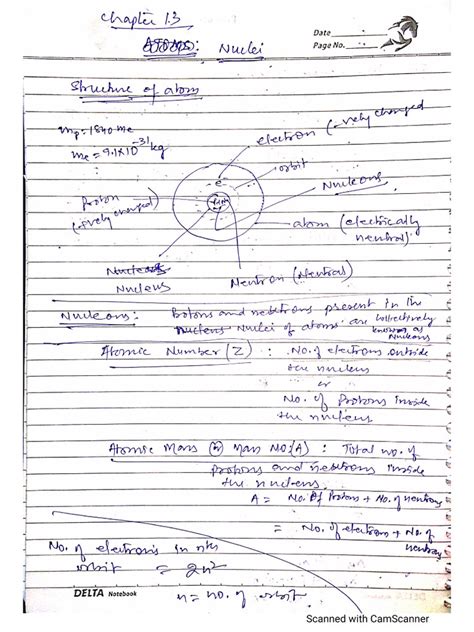 Chapter 13
Date
Page No.
ATOMS: Nuclei
Structure of atom
mp = 1840 me
me = 9.1×10⁻³¹ kg
electron (-vely charged)
orbit
e⁻
Nucleons
Proton
(+vely charged)
atom (electrically
neutral)
Nucleus
Neutron (Neutral)
Nucleons: Protons and neutrons present in the
Nuclei of atoms are collectively
known as
Nucleons
Atomic Number (Z) : No. of electrons outside
the nucleus
or
No. of Protons inside
the nucleus
Atomic Mass or Mass No.(A) : Total no. of
protons and neutrons inside
the nucleus.
A = No. of Protons + No. of neutrons
= No. of electron + No. of
neutrons
No. of electrons in nth
orbit = 2n²
n = no. of orbit
DELTA Notebook
Scanned with CamScanner